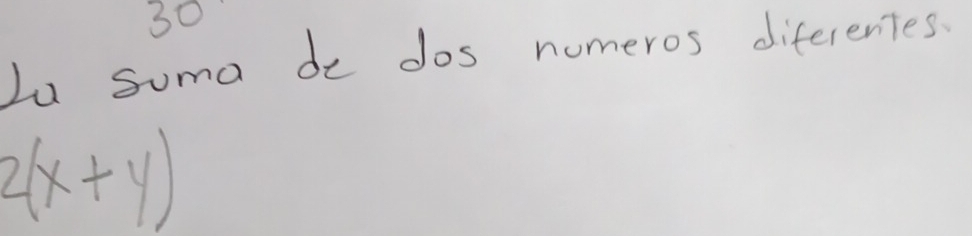 30
La suma de dos numeros diferentes.
2(x+y)